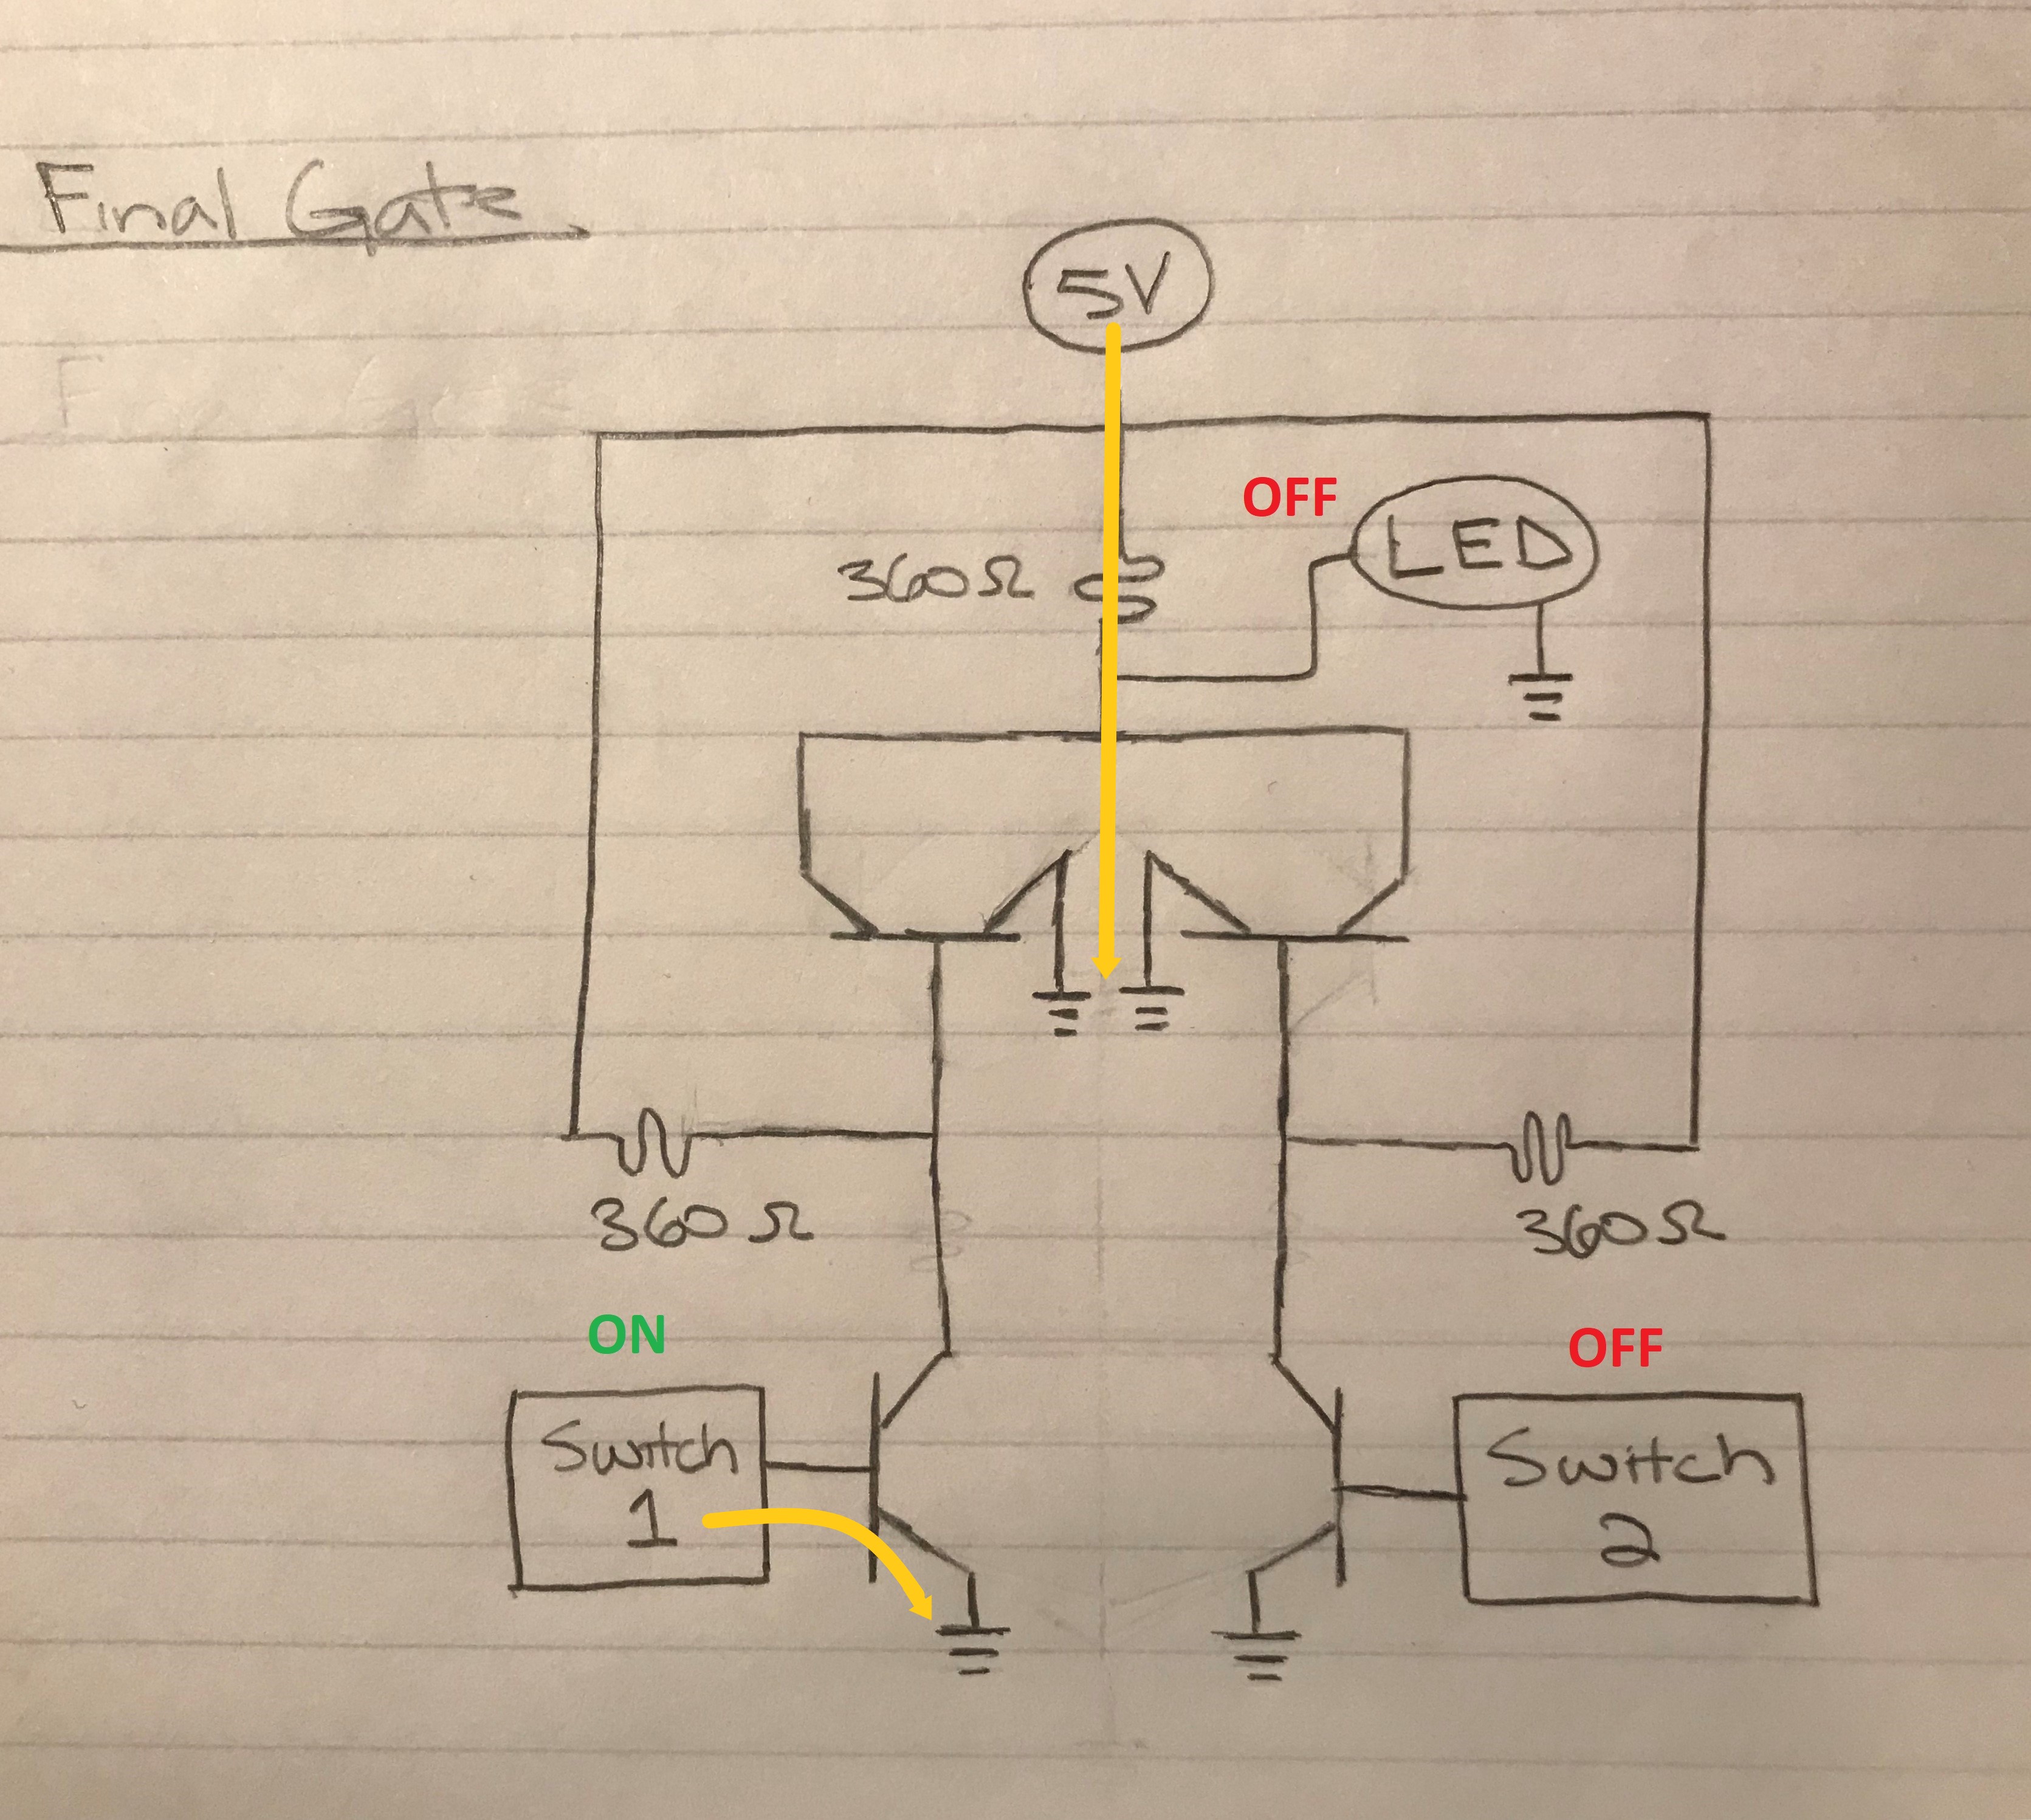 Final Gate
5V
OFF
LED
360Ω
360Ω
360Ω
ON
OFF
Switch
1
Switch
2